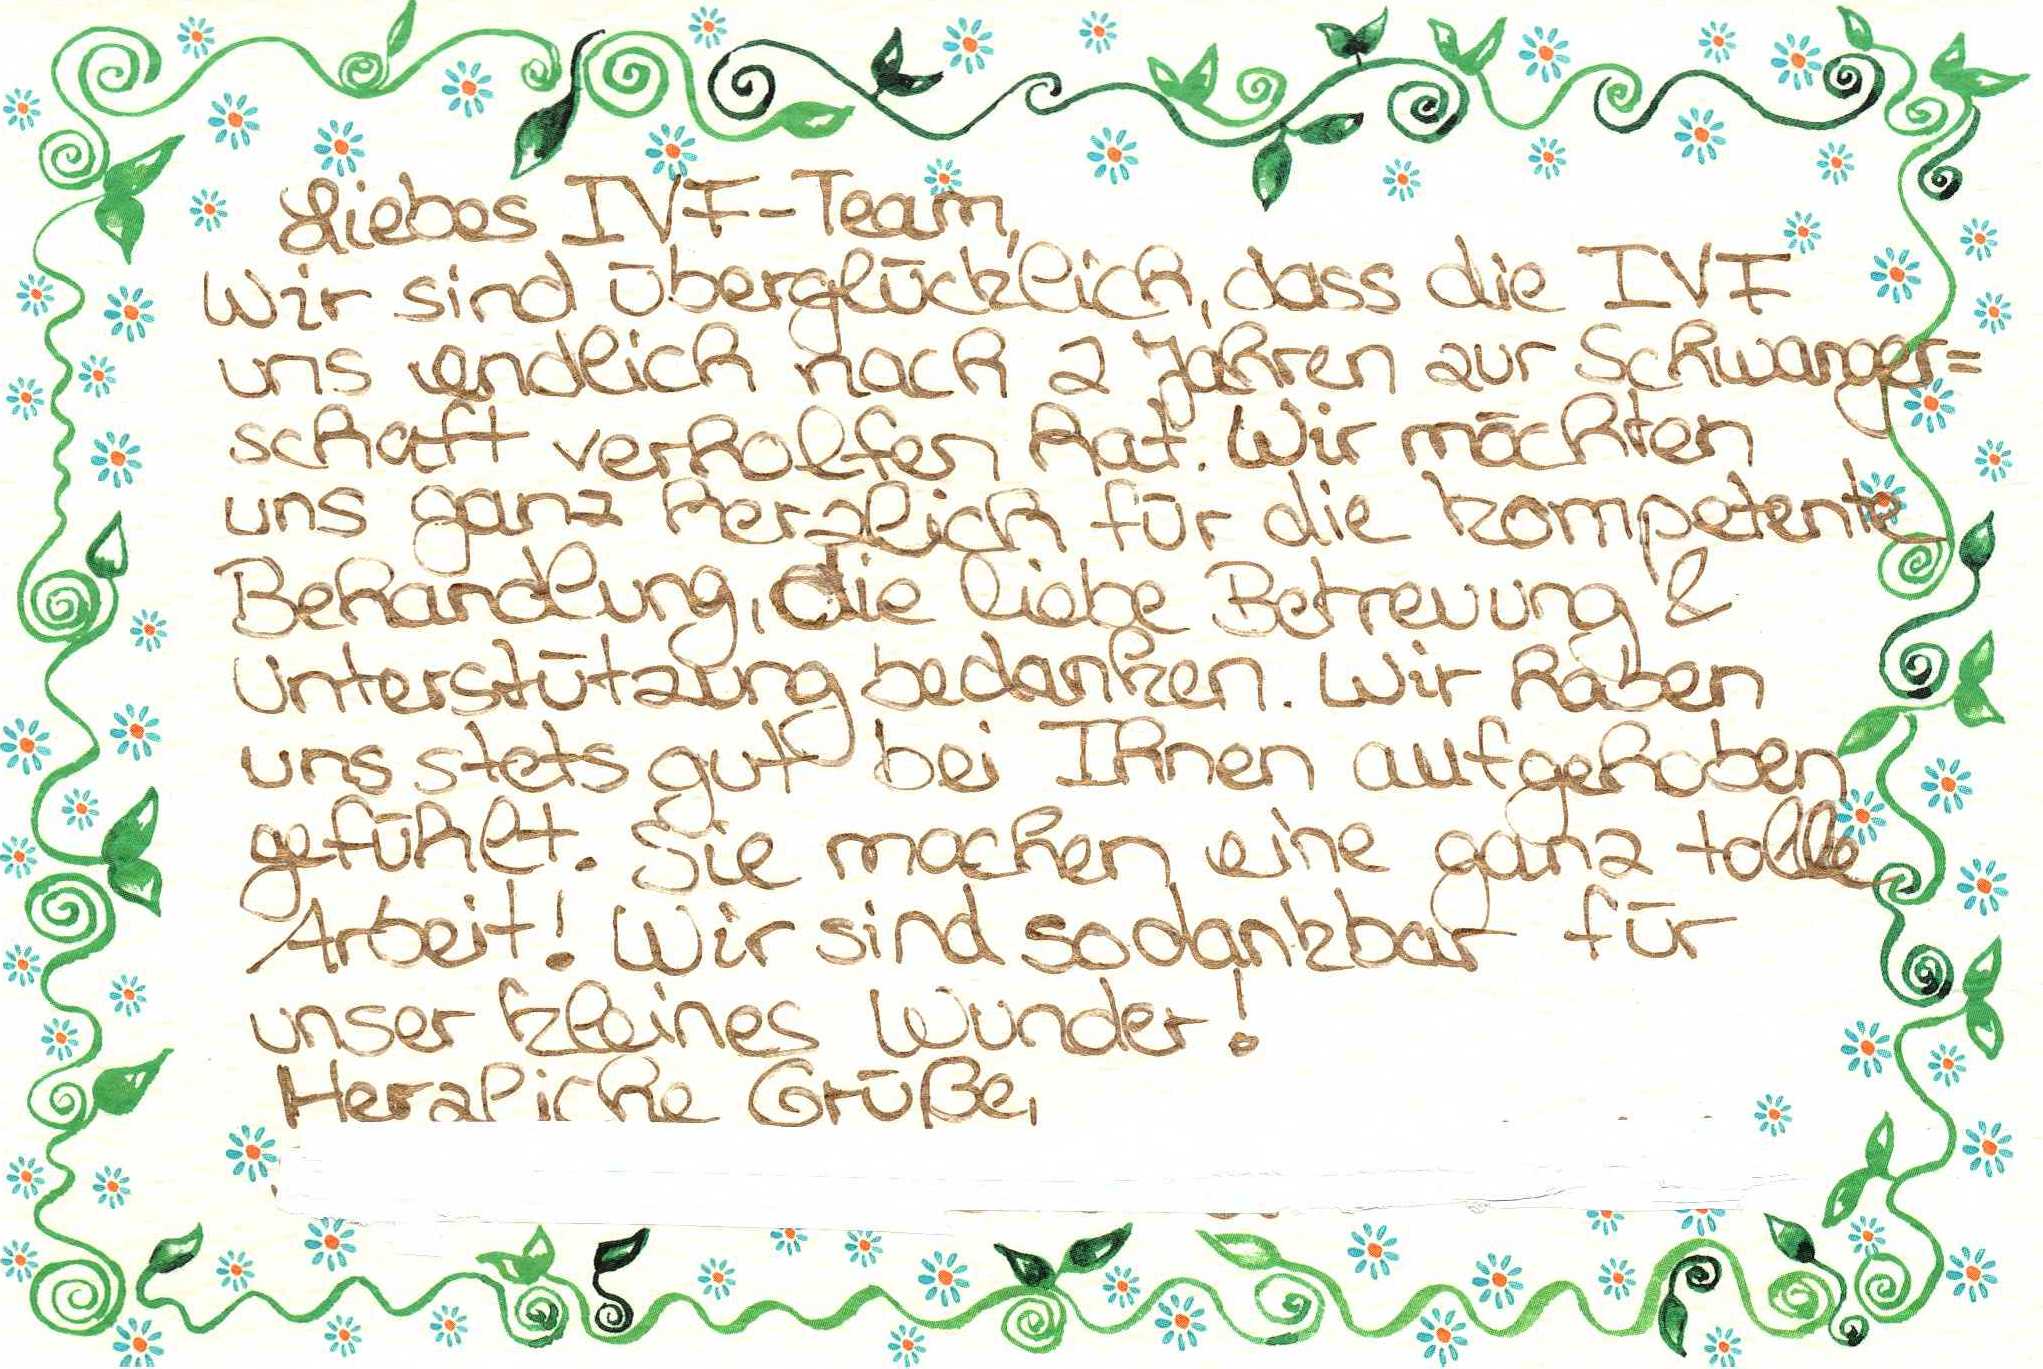 Liebes IVF-Team,
Wir sind überglücklich, dass die IVF
uns endlich nach 2 Jahren zur Schwanger=
schaft verholfen hat. Wir möchten
uns ganz herzlich für die kompetente
Behandlung, die liebe Betreuung &
Unterstützung bedanken. Wir haben
uns stets gut bei Ihnen aufgehoben
gefühlt. Sie machen eine ganz tolle
Arbeit! Wir sind so dankbar für
unser kleines Wunder!
Herzliche Grüße,